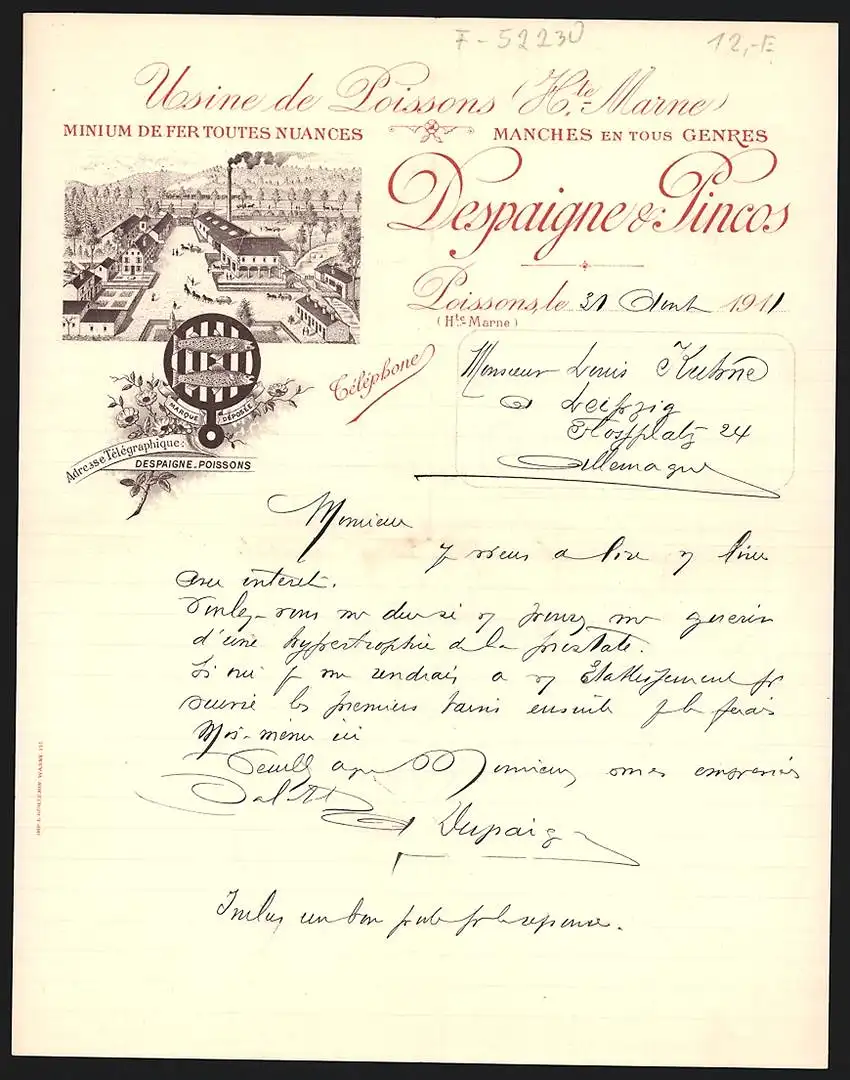 F-52230
12,-E
Usine de Poissons (Hte-Marne)
MINIUM DE FER TOUTES NUANCES
MANCHES EN TOUS GENRES
Despaigne & Pincos
Poissons, le 31 Aout 1911
(Hte-Marne)
Téléphone
MARQUE DÉPOSÉE
Adresse Télégraphique:
DESPAIGNE_POISSONS
Monsieur Louis Kuhne
à Leipzig
Flossplatz 24
Allemagne
Monsieur
Je viens de lire
avec intérêt.
Voulez-vous me dire si v pouvez me guérir
d'une hypertrophie de la prostate.
Si oui je me rendrais à v Etablissement pr
suivre les premiers bains ensuite je les ferais
Moi-même ici
Veuillez agréer Monsieur mes empressées
Salut
Despaigne
Inclus un bon poste pr la réponse.